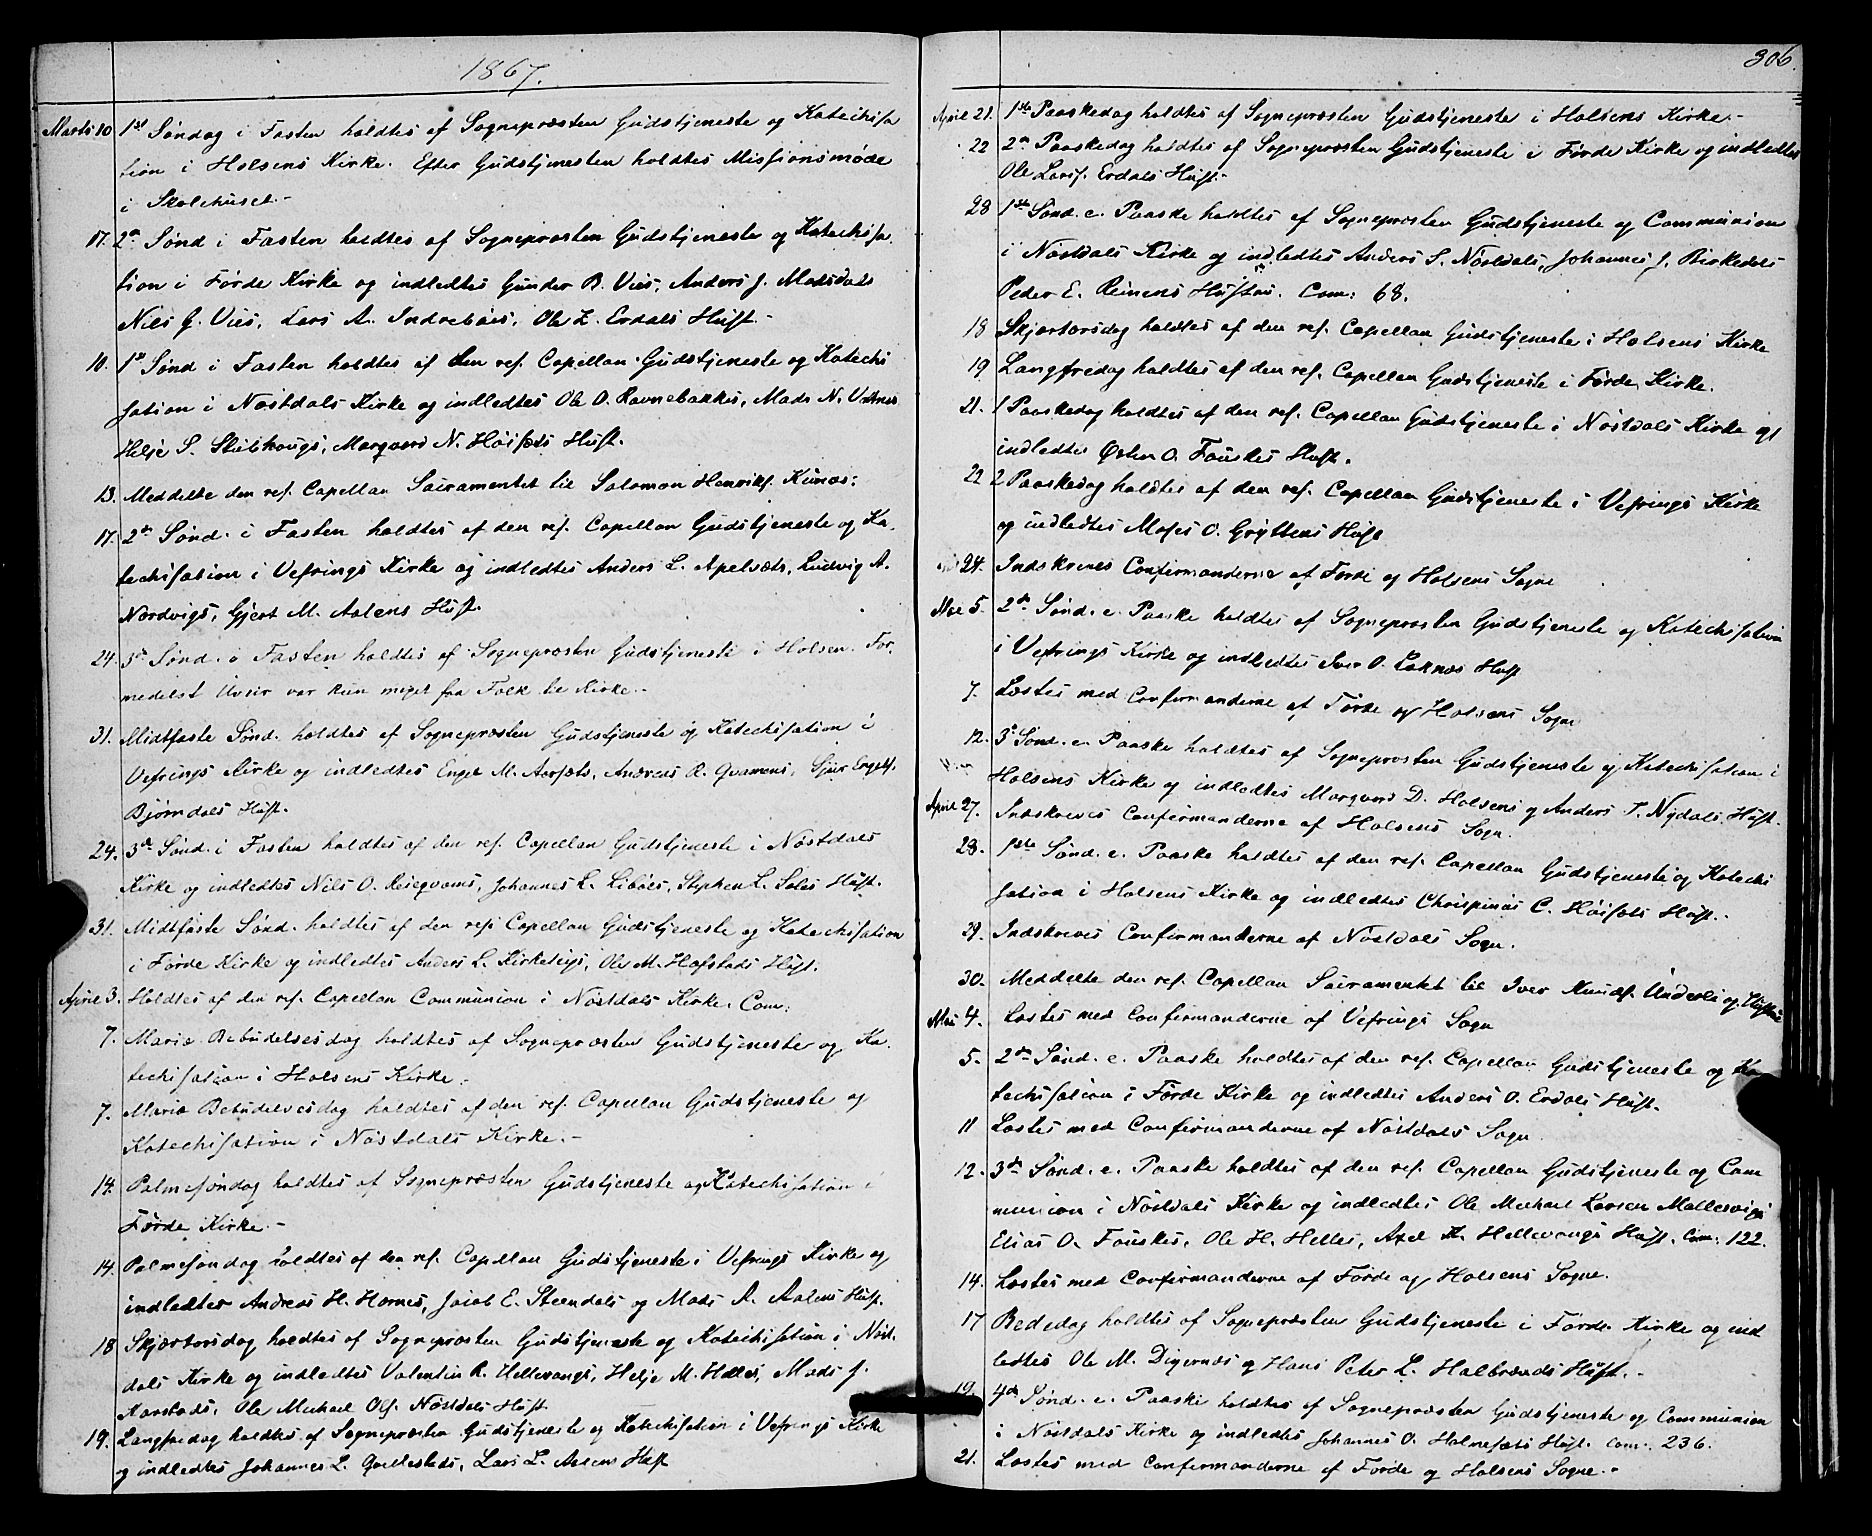 1867.
Marts 10 1ste Søndag i Fasten holdtes af Sognepræsten Gudstjeneste og Katechisa
tion i Holsens Kirke. Efter Gudstjenesten holdtes Missionsmøde
i Skolehuset.-
17. 2den Sønd i Fasten holdtes af Sognepræsten Gudstjeneste og Katechisa
tion i Førde Kirke og indledtes Gunder B. Vies, Anders J. Matsdals
Niels G. Vies, Lars A. Indrebøes, Ole L. Erdals Hust.-
10. 1ste Sønd i Fasten holdtes af den res. Capellan Gudstjeneste og Katechi
sation i Nøstdals Kirke og indledtes Ole O. Ravnebakkes, Mads N. Vatnes
Helje S. Steenhougs, Margvard N. Høisæts Hust.
13. Meddelte den res. Capellan Sacramentet til Salomon Henriks. Kunæs:
17. 2den Sønd. i Fasten holdtes af den res. Capellan Gudstjeneste og Ka
techisation i Vefrings Kirke og indledtes Anders L. Apelsæts, Ludvig A.
Nordvigs, Gjert M. Aalens Hust.
24. 3de Sønd. i Fasten holdtes af Sognepræsten Gudstjeneste i Holsen. For
medelst Uveir var kun meget faa Folk til Kirke.-
31. Midtfaste Sønd. holdtes af Sognepræsten Gudstjeneste og Katechisation i
Vefrings Kirke og indledtes Engel M. Aarsæts, Andreas R. Qvamens, Sjur Engels.
Bjørndals Hust.
24. 3de Sønd. i Fasten holdtes af den res. Capellan Gudstjeneste i Nøstdals
Kirke og indledtes Nils O. Reieqvams, Johannes L. Libøes, Stephen L. Soles Hust.
31. Midtfaste Sønd. holdtes af den res. Capellan Gudstjeneste og Katechisation
i Førde Kirke og indledtes Anders L. Kirketeigs, Ole M. Hafstads Hust.
April 3. Holdtes af den res. Capellan Communion i Nøstdals Kirke. Com:
7. Mariæ Bebudelsesdag holdtes af Sognepræsten Gudstjeneste og Ka
techisation i Holsens Kirke.
7. Mariæ Bebudelsesdag holdtes af den res. Capellan Gudstjeneste og
Katechisation i Nøstdals Kirke.-
14. Palmesøndag holdtes af Sognepræsten Gudstjeneste og Katechisation i
Førde Kirke.-
14. Palmesøndag holdtes af den res. Capellan Gudstjeneste i Vefrings Kirke og
indledtes Andreas H. Hornes, Jacob E. Steendals og Mads A. Aalens Hust.
18 Skjærtorsdag holdtes af Sognepræsten Gudstjeneste og Katechisation i Nøst
dals Kirke og indledtes Valentin R. Hellevangs, Helje M. Helles, Mads J.
Karstads, Ole Michael Ols. Nøstdals Hust
19. Langfredag holdtes af Sognepræsten Gudstjeneste og Katechisation i Vefrings Kirke
og indledtes Johannes L. Gjellesteds, Lars L. Aasens Hust
306.
April 21. 1ste Paaskedag holdtes af Sognepræsten Gudstjeneste i Holsens Kirke.-
22 2den Paaskedag holdtes af Sognepræsten Gudstjeneste i Førde Kirke og indledtes
Ole Lars. Erdals Hust.-
28 1ste Sønd. e. Paaske holdtes af Sognepræsten Gudstjeneste og Communion
i Nøstdals Kirke og indledtes Anders S. Nøstdals, Johannes J. Birkedals
Peder E. Reinens Hustru. Com: 68.
18 Skjærtorsdag holdtes af den res. Capellan Gudstjeneste i Holsens Kirke
19 Langfredag holdtes af den res. Capellan Gudstjeneste i Førde Kirke.
21. 1 Paaskedag holdtes af den res. Capellan Gudstjeneste i Nøstdals Kirke og
indledtes Østen O. Fouskes Hust.
22 2 Paaskedag holdtes af den res. Capellan Gudstjeneste i Vefrings Kirke
og indledtes Moses O. Gryttens Hust
24. Indskreves Confirmanderne af Førde og Holsens Sogne
Mai 5. 2den Sønd. e. Paaske holdtes af Sognepræsten Gudstjeneste og Katechisation
i Vefrings Kirke og indledtes Iver O. Løknæs Hust
7. Læstes med Confirmanderne af Førde og Holsens Sogne
12. 3de Sønd. e. Paaske holdtes af Sognepræsten Gudstjeneste og Katechisation i
Holsens Kirke og indledtes Margvard D. Holsens og Anders T. Nydals Hust.
April 27. Indskreves Confirmanderne af Holsens Sogn.
28. 1ste Sønd. e. Paaske holdtes af den res. Capellan Gudstjeneste og Katechi
sation i Holsens Kirke og indledtes Chrispinus C. Høisæts Hust.-
29. Indskreves Confirmanderne af Nøstdals Sogn.
30. Meddelte den res. Capellan Sacramentet til Iver Knuds. Underli og Hustrue
Mai 4. Læstes med Confirmanderne af Vefrings Sogn
5. 2den Sønd. e. Paaske holdtes af den res. Capellan Gudstjeneste og Ka
techisation i Førde Kirke og indledtes Anders O. Erdals Hust.
11 Læstes med Confirmanderne af Nøstdals Sogn
12. 3de Sønd. e. Paaske holdtes af den res. Capellan Gudstjeneste og Com
munion i Nøstdals Kirke og indledtes Ole Michael Larsen Mallesvigs
Elias O. Fouskes, Ole H. Helles, Axel K. Hellevangs Hust. Com: 122.
14. Læstes med Confirmanderne af Førde og Holsens Sogne.
17 Bededag holdtes af Sognepræsten Gudstjeneste i Førde Kirke og ind
ledtes Ole M. Digernæs og Hans Peter L. Halbrænds Hust.-
19. 4de Sønd. e. Paaske holdtes af Sognepræsten Gudstjeneste og Communion
i Nøstdals Kirke og indledtes Johannes O. Holmesæts Hust. Com: 236.
21. Læstes med Confirmanderne af Førde og Holsens Sogne.-